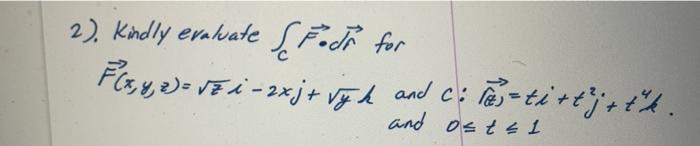 2). Kindly evaluate ∫_C F⃗·dr⃗ for
F⃗(x,y,z)=√z i-2xj+√y k and c: r⃗(t)=ti+t²j+t⁴k.
and 0≤t≤1